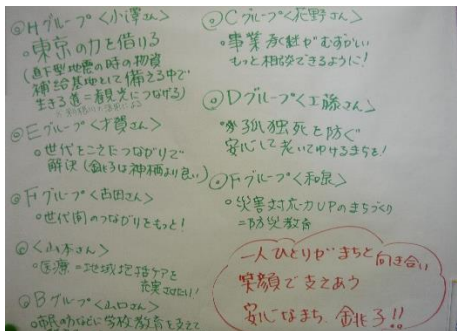 ◎Hグループ〈小澤さん〉
○東京の力を借りる
(直下型地震の時の物資
補給基地として備える中で
生きる道=観光につなげる)
◎Eグループ〈才賀さん〉
○世代をこえたつながりで
解決(銚子は神栖より良い)
◎Fグループ〈古田さん〉
○世代間のつながりをもっと!
◎〈山本さん〉
○医療=地域包括ケアを
充実させたい!
◎Bグループ〈山口さん〉
○市民の力などに学校教育を支えて
◎Cグループ〈花野さん〉
○事業承継がむずかしい
もっと相談できるように!
◎Dグループ〈工藤さん〉
孤独死を防ぐ
安心して老いてゆけるまちを!
◎Fグループ〈和泉〉
○災害対応力UPのまちづくり
=防災教育
一人ひとりがまちと向き合い
笑顔で支えあう
安心なまち 銚子!!